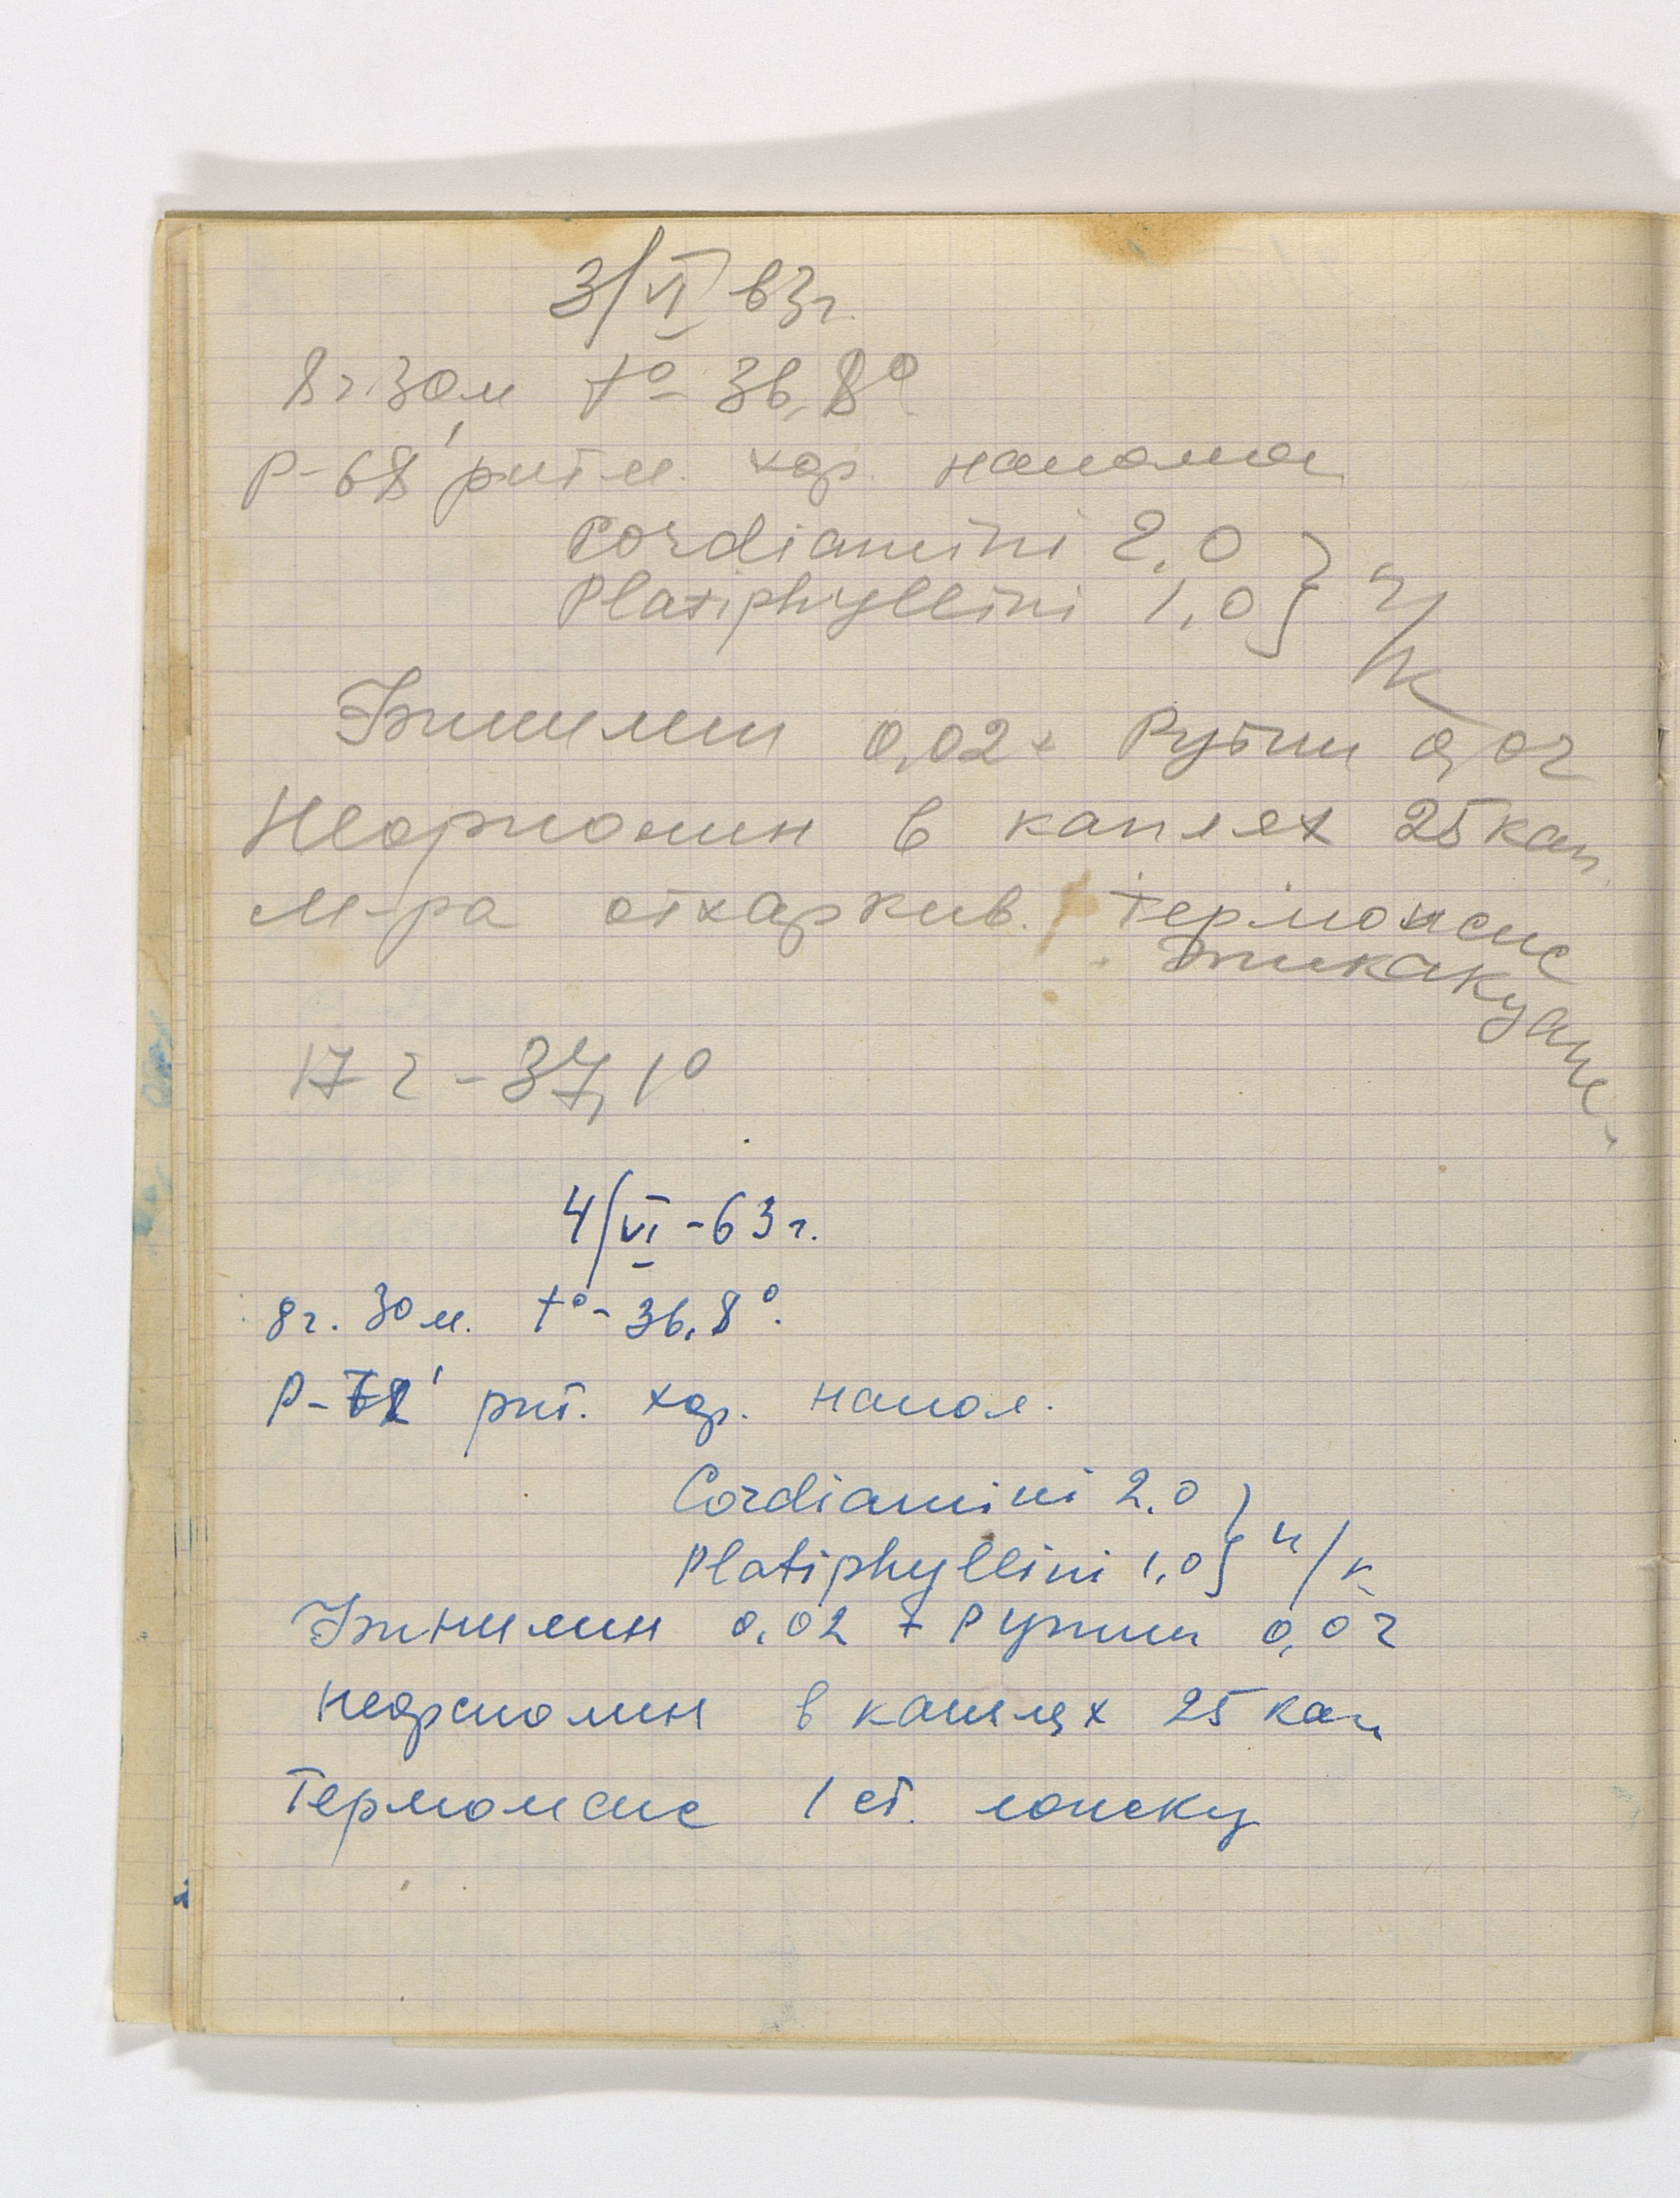 3/VI 63г.
8ч.30м t°- 36,8°
P-68' ритм. хор. наполн
Cordiamini 2,0
Platiphyllini 1,0 } п/к
0,02 + Рутин 0,02
в каплях 25 кап.
м-ра отхаркив. термопсис
17 ч - 37,1°
4/VI -63г.
8ч. 30м. t°- 36,8°.
P-72' рит. хор. напол.
Cordiamini 2.0
Platiphyllini 1,0 } п/к
0,02 + Рутин 0,02
в каплях 25 кап
Термопсис 1 ст. ложку